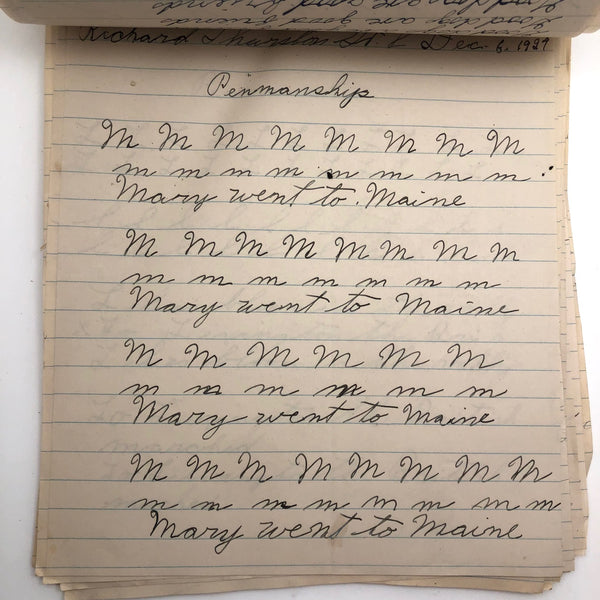 Good dogs are good friends
Richard Thurston Gr. 6 Dec. 6, 1927
Penmanship
M M M M M M M M
m m m m m m m m
Mary went to Maine
M M M M M M M M
m m m m m m m m
Mary went to Maine
M M M M M M
m m m m m m
Mary went to Maine
M M M M M M M M
m m m m m m m m
Mary went to Maine